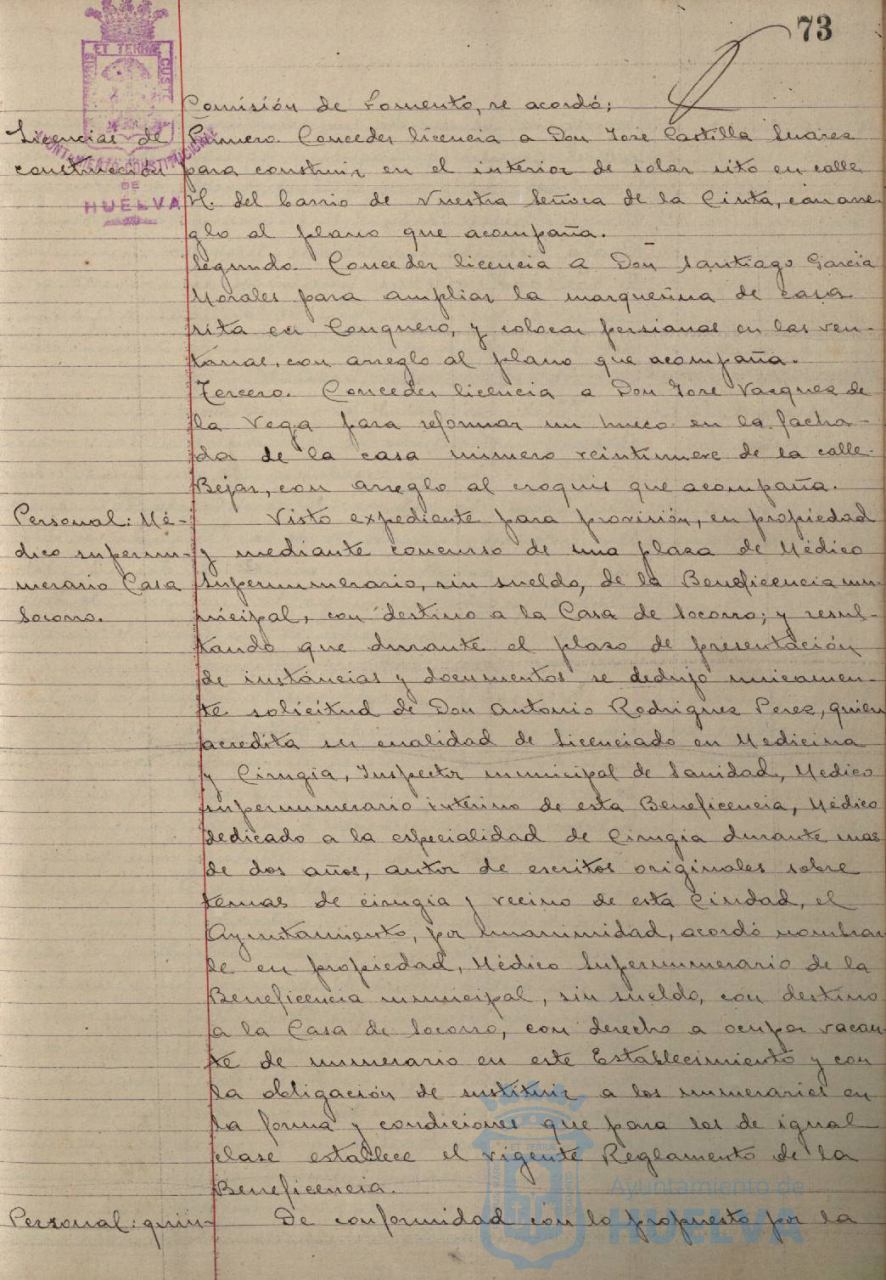 73
Comisión de Fomento, se acordó;
Licencias de
construcción
Primero. Conceder licencia a Don José Castilla Suarez
para construir en el interior de solar sito en calle
H. del barrio de Nuestra Señora de la Cinta, con arre-
glo al plano que acompaña.
Segundo. Conceder licencia a Don Santiago García
Morales para ampliar la marquesina de casa
sita en Conquero, y colocar persianas en las ven-
tanas, con arreglo al plano que acompaña.
Tercero. Conceder licencia a Don José Vazquez de
la Vega para reformar un hueco en la facha-
da de la casa número veintinueve de la calle
Bejar, con arreglo al croquis que acompaña.
Personal: Mé-
dico supernu-
merario Casa
Socorro.
Visto expediente para provisión, en propiedad
y mediante concurso de una plaza de Médico
Supernumerario, sin sueldo, de la Beneficencia mu-
nicipal, con destino a la Casa de Socorro; y resul-
tando que durante el plazo de presentación
de instancias y documentos se dedujo unicamen-
te solicitud de Don Antonio Rodriguez Perez, quien
acredita su cualidad de Licenciado en Medicina
y Cirugia, Inspector municipal de Sanidad, Medico
supernumerario interino de esta Beneficencia, Médico
dedicado a la especialidad de Cirugia durante mas
de dos años, autor de escritos originales sobre
temas de cirugia y vecino de esta Ciudad, el
Ayuntamiento, por unanimidad, acordó nombrar
le en propiedad, Médico Supernumerario de la
Beneficencia municipal, sin sueldo, con destino
a la Casa de Socorro, con derecho a ocupar vacan-
te de numerario en este Establecimiento y con
la obligación de sustituir a los numerarios en
la forma y condiciones que para los de igual
clase establece el vigente Reglamento de la
Beneficencia.
Personal: quin-
De conformidad con lo propuesto por la
ET TERRAE CUSTO
AYUNTAMIENTO CONSTITUCIONAL
DE
HUELVA
Ayuntamiento de
HUELVA